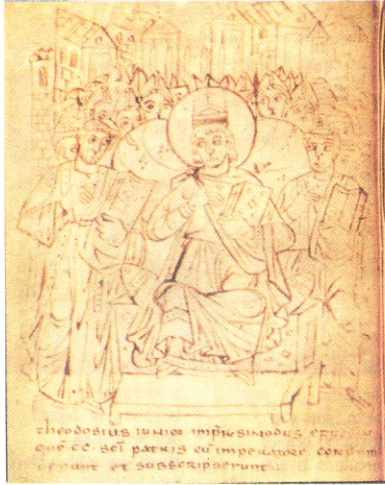 theodosius iunior imp̄r sinodus
quē CC. sc̄i patris cū imperatore
et subscripserunt